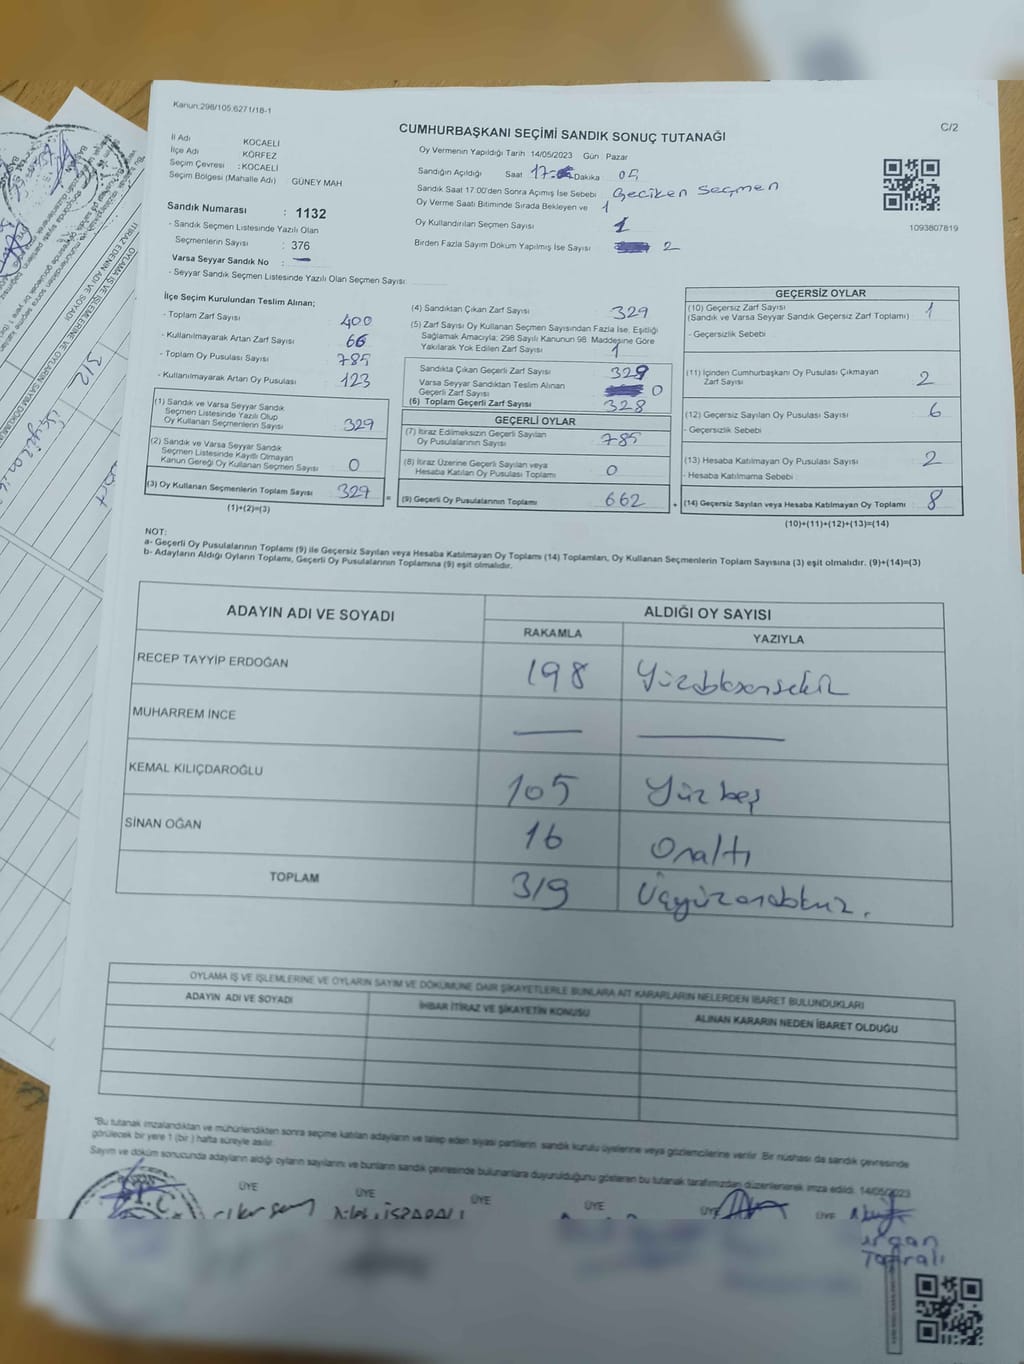 Kanun:298/105.6271/18-1
C/2
CUMHURBAŞKANI SEÇİMİ SANDIK SONUÇ TUTANAĞI
İl Adı KOCAELİ
İlçe Adı KÖRFEZ
Seçim Çevresi : KOCAELİ
Seçim Bölgesi (Mahalle Adı) GÜNEY MAH
Sandık Numarası : 1132
- Sandık Seçmen Listesinde Yazılı Olan
Seçmenlerin Sayısı : 376
Varsa Seyyar Sandık No : —
- Seyyar Sandık Seçmen Listesinde Yazılı Olan Seçmen Sayısı:
Oy Vermenin Yapıldığı Tarih :14/05/2023 Gün Pazar
Sandığın Açıldığı Saat 17: Dakika 05
Sandık Saat 17.00'den Sonra Açımış İse Sebebi Geciken Seçmen
Oy Verme Saati Bitiminde Sırada Bekleyen ve 1
Oy Kullandırılan Seçmen Sayısı 1
Birden Fazla Sayım Döküm Yapılmış İse Sayısı 2
1093807819
İlçe Seçim Kurulundan Teslim Alınan;
- Toplam Zarf Sayısı 400
- Kullanılmayarak Artan Zarf Sayısı 66
- Toplam Oy Pusulası Sayısı 785
- Kullanılmayarak Artan Oy Pusulası 123
(1) Sandık ve Varsa Seyyar Sandık
Seçmen Listesinde Yazılı Olup
Oy Kullanan Seçmenlerin Sayısı 329
(2) Sandık ve Varsa Seyyar Sandık
Seçmen Listesinde Kayıtlı Olmayan
Kanun Gereği Oy Kullanan Seçmen Sayısı 0
(3) Oy Kullanan Seçmenlerin Toplam Sayısı 329 =
(1)+(2)=(3)
(4) Sandıktan Çıkan Zarf Sayısı 329
(5) Zarf Sayısı Oy Kullanan Seçmen Sayısından Fazla İse, Eşitliği
Sağlamak Amacıyla; 298 Sayılı Kanunun 98. Maddesine Göre
Yakılarak Yok Edilen Zarf Sayısı 1
Sandıkta Çıkan Geçerli Zarf Sayısı 329
Varsa Seyyar Sandıktan Teslim Alınan
Geçerli Zarf Sayısı 0
(6) Toplam Geçerli Zarf Sayısı 328
GEÇERLİ OYLAR
(7) İtiraz Edilmeksizin Geçerli Sayılan
Oy Pusulalarının Sayısı 785
(8) İtiraz Üzerine Geçerli Sayılan veya
Hesaba Katılan Oy Pusulası Toplamı 0
(9) Geçerli Oy Pusulalarının Toplamı 662 +
GEÇERSİZ OYLAR
(10) Geçersiz Zarf Sayısı 1
(Sandık ve Varsa Seyyar Sandık Geçersiz Zarf Toplamı)
- Geçersizlik Sebebi
(11) İçinden Cumhurbaşkanı Oy Pusulası Çıkmayan
Zarf Sayısı 2
(12) Geçersiz Sayılan Oy Pusulası Sayısı 6
- Geçersizlik Sebebi
(13) Hesaba Katılmayan Oy Pusulası Sayısı 2
- Hesaba Katılmama Sebebi
(14) Geçersiz Sayılan veya Hesaba Katılmayan Oy Toplamı 8
(10)+(11)+(12)+(13)=(14)
NOT:
a- Geçerli Oy Pusulalarının Toplamı (9) ile Geçersiz Sayılan veya Hesaba Katılmayan Oy Toplamı (14) Toplamları, Oy Kullanan Seçmenlerin Toplam Sayısına (3) eşit olmalıdır. (9)+(14)=(3)
b- Adayların Aldığı Oyların Toplamı, Geçerli Oy Pusulalarının Toplamına (9) eşit olmalıdır.
ADAYIN ADI VE SOYADI
ALDIĞI OY SAYISI
RAKAMLA YAZIYLA
RECEP TAYYİP ERDOĞAN 198 Yüzdoksansekiz
MUHARREM İNCE — —
KEMAL KILIÇDAROĞLU 105 Yüz beş
SİNAN OĞAN 16 Onaltı
TOPLAM 319 Üçyüzondokuz.
OYLAMA İŞ VE İŞLEMLERİNE VE OYLARIN SAYIM VE DÖKÜMÜNE DAİR ŞİKAYETLERLE BUNLARA AİT KARARLARIN NELERDEN İBARET BULUNDUKLARI
ADAYIN ADI VE SOYADI İHBAR İTİRAZ VE ŞİKAYETİN KONUSU ALINAN KARARIN NEDEN İBARET OLDUĞU
*Bu tutanak imzalandıktan ve mühürlendikten sonra seçime katılan adayların ve talep eden siyasi partilerin sandık kurulu üyelerine veya gözlemcilerine verilir. Bir nüshası da sandık çevresinde
görülecek bir yere 1 (bir ) hafta süreyle asılır.
Sayım ve döküm sonucunda adayların aldığı oyların sayılarını ve bunların sandık çevresinde bulunanlara duyurulduğunu gösteren bu tutanak tarafımızdan düzenlenerek imza edildi. 14/05/2023
ÜYE ÜYE ÜYE ÜYE ÜYE ÜYE